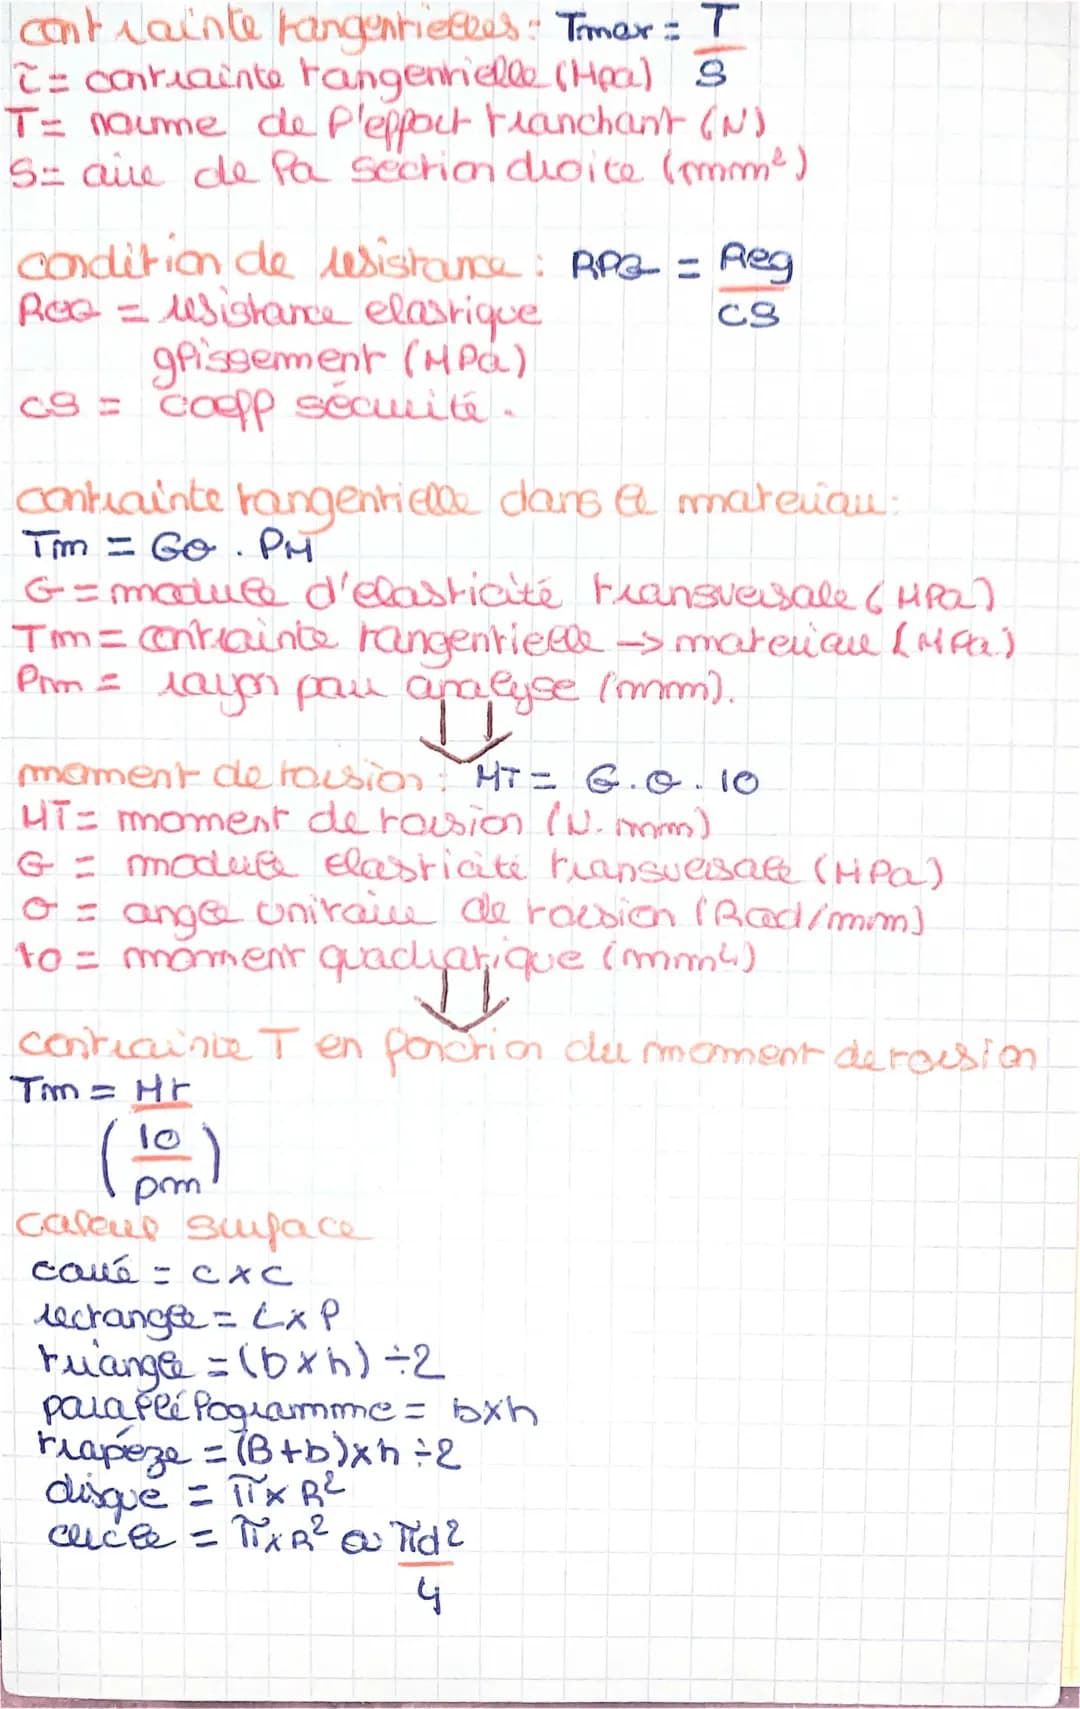 contrainte tangentielles : Tmax = T/S
τ = contrainte tangentielle (Mpa)
T = norme de l'effort tranchant (N)
S = aire de la section droite (mm²)
condition de resistance : RPG = Reg/cs
ReG = resistance elastique
glissement (MPa)
cs = coeff sécurité.
contrainte tangentielle dans le materiau :
Tm = Gθ . PM
G = module d'elasticité transversale (MPa)
Tm = contrainte tangentielle → materiau (MPa)
Pm = rayon par analyse (mm).
moment de torsion : MT = G.θ.IO
MT = moment de torsion (N.mm)
G = module elasticité transversale (MPa)
θ = angle unitaire de torsion (Rad/mm)
IO = moment quadratique (mm4)
contrainte T en fonction du moment de torsion
Tm = Mt
(IO/pm)
calcul surface
carré = c x c
rectangle = L x l
triangle = (b x h) ÷ 2
parallélogramme = b x h
trapéze = (B + b) x h ÷ 2
disque = π x R²
cercle = π x R² ou πd²/4